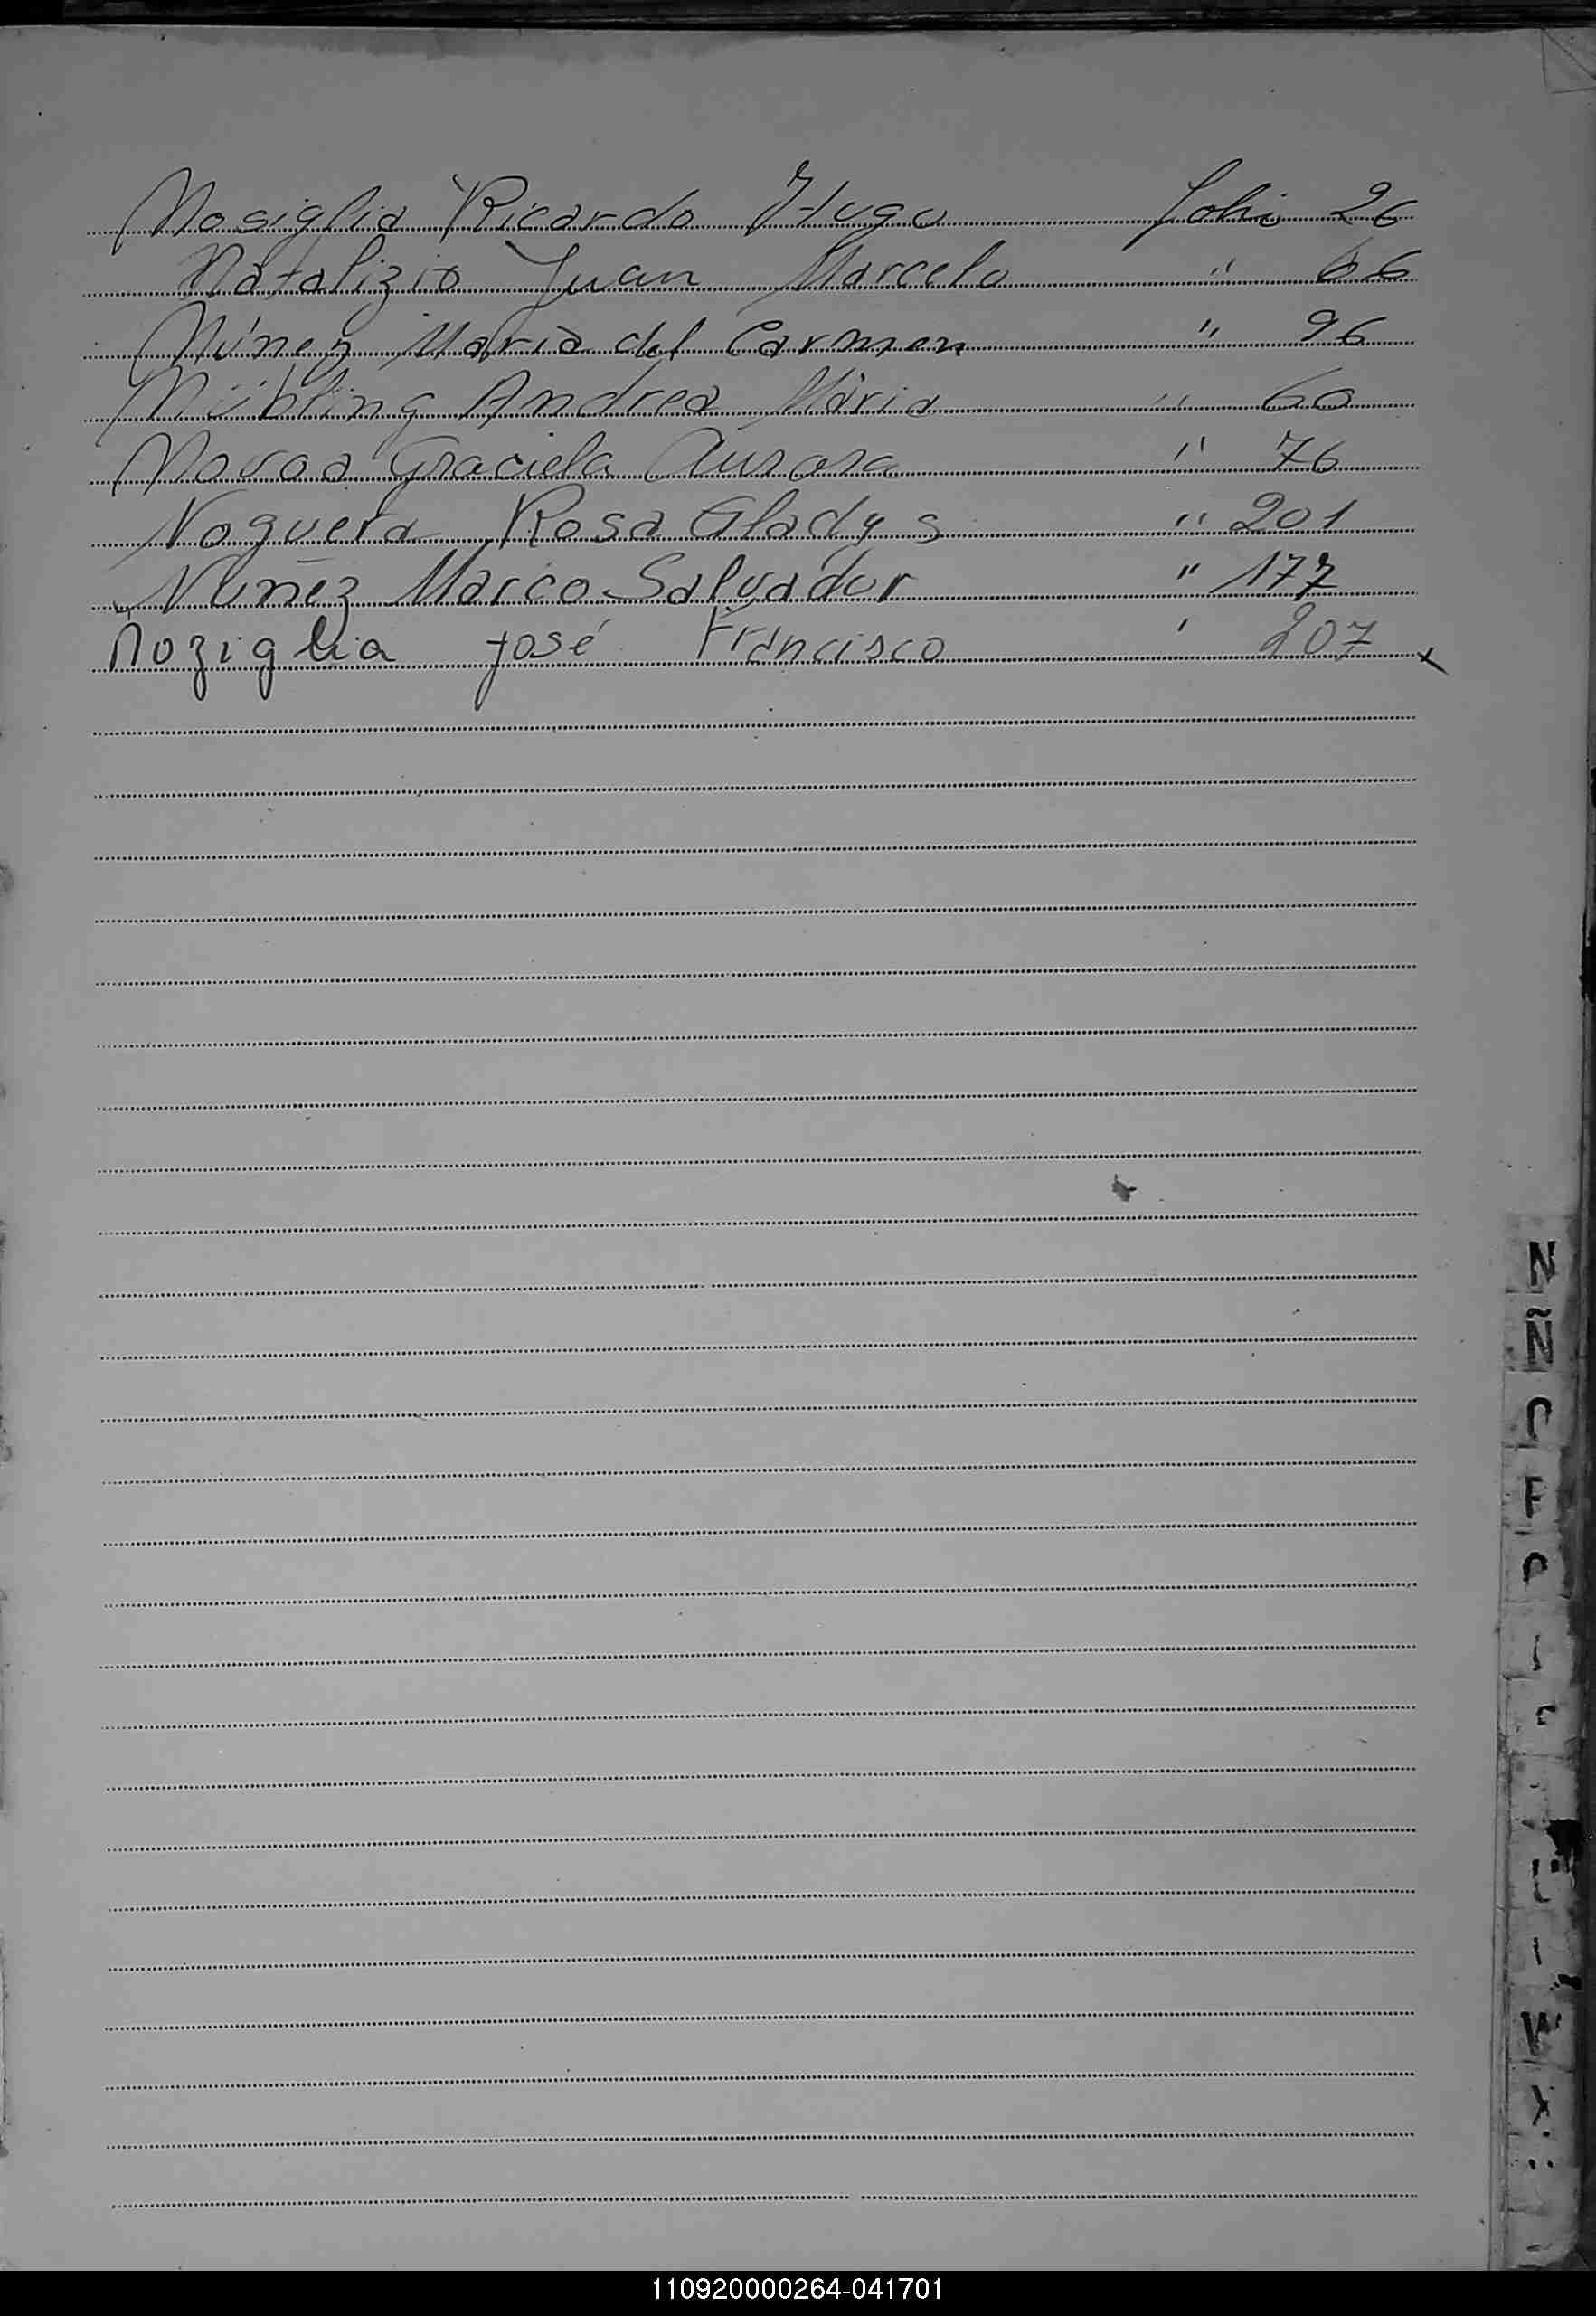 Nosiglia Ricardo Hugo Folio 26
Natalizio Juan Marcelo " 66
Núnez Maria del Carmen " 96
Andrea Maria " 60
Novoa Graciela Aurora " 76
Noguera Rosa Gladys " 201
Nuñez Marco Salvador " 177
Noziglia José Francisco ' 207 x
N
Ñ
O
P
W
X
110920000264-041701